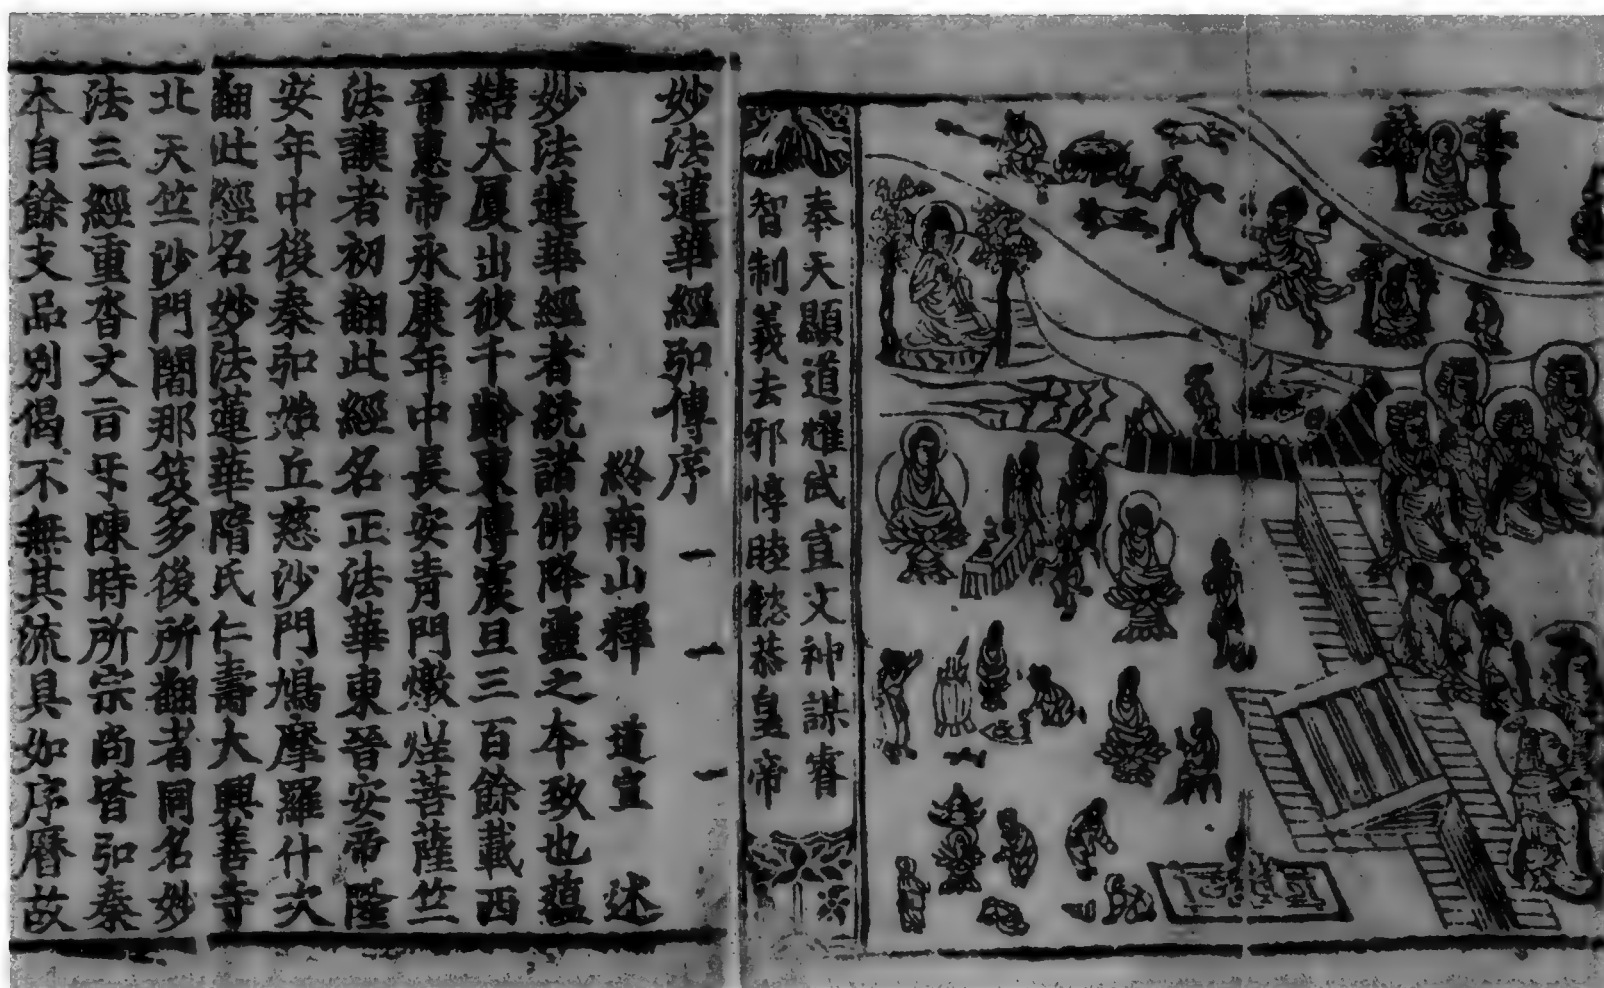 奉天顯道耀武宣文神謀睿
智制義去邪惇睦懿恭皇帝
妙法蓮華經弘傳序
終南山釋 道宣 述
妙法蓮華經者統諸佛降靈之本致也蘊
結大厦出彼千齡東傳宸旦三百餘載西
晉惠帝永康年中長安青門燉煌菩薩竺
法護者初翻此經名正法華東晉安帝隆
安年中後秦弘始丘慈沙門鳩摩羅什次
翻此經名妙法蓮華隋氏仁壽大興善寺
北天竺沙門闍那笈多後所翻者同名妙
法三經重沓文旨互陳時所宗尚皆弘秦
本自餘支品別偈不無其流具如序曆故